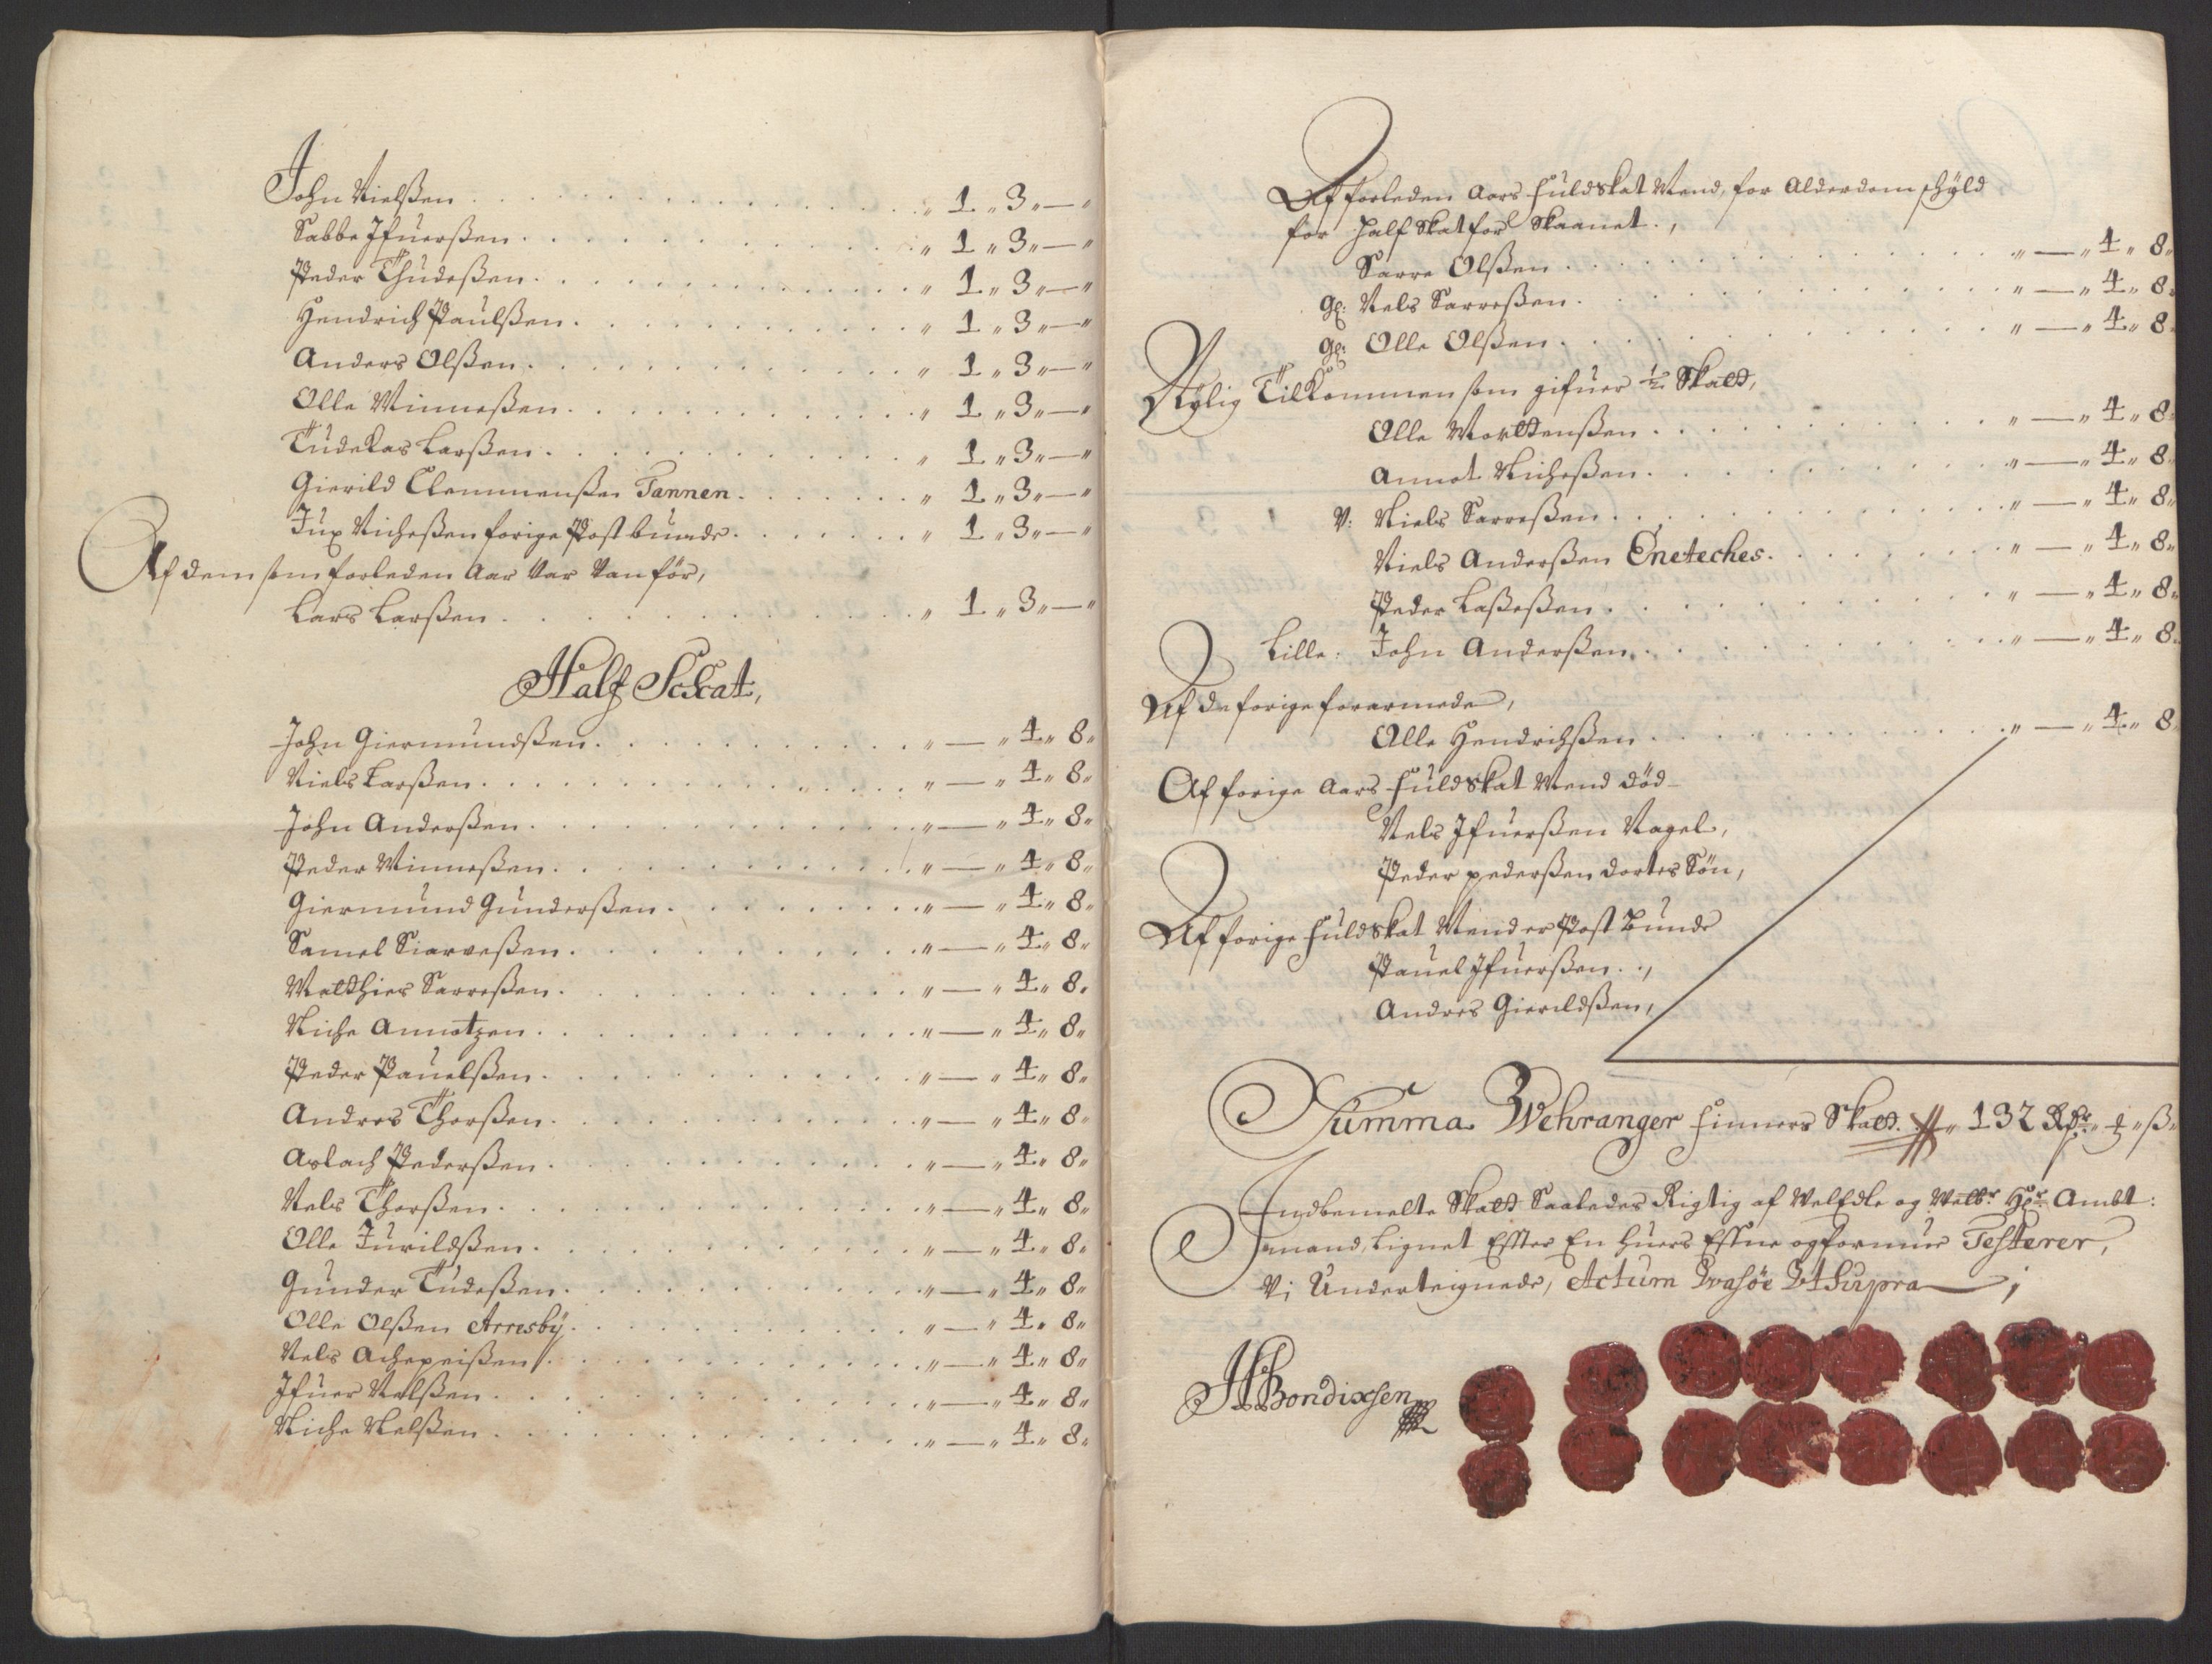 John Nielßen . . . „ 1 „ 3 „ — „
Sabbe Ifuerßen . . . „ 1 „ 3 „ — „
Peder Thudeßen . . . „ 1 „ 3 „ — „
Hendrich Paulßen . . . „ 1 „ 3 „ — „
Anders Olßen . . . „ 1 „ 3 „ — „
Olle Winneßen . . . „ 1 „ 3 „ — „
Tudekas Larßen . . . „ 1 „ 3 „ — „
Gierild Clemmenßen Tannen . . . „ 1 „ 3 „ — „
Jux Nicheßen forige Post bunde . . . „ 1 „ 3 „ — „
Af dem som forleden Aar var Vanför,
Lars Larßen . . . „ 1 „ 3 „ — „
Half Schat,
John Giermundßen . . . „ — „ 4 „ 8 „
Niels Larßen . . . „ — „ 4 „ 8 „
John Anderßen . . . „ — „ 4 „ 8 „
Peder Winneßen . . . „ — „ 4 „ 8 „
Giermund Gunderßen . . . „ — „ 4 „ 8 „
Samel Siarveßen . . . „ — „ 4 „ 8 „
Matthies Sarreßen . . . „ — „ 4 „ 8 „
Niche Annotzen . . . „ — „ 4 „ 8 „
Peder Pauelßen . . . „ — „ 4 „ 8 „
Andres Thorßen . . . „ — „ 4 „ 8 „
Aslach Pederßen . . . „ — „ 4 „ 8 „
Nels Thorßen . . . „ — „ 4 „ 8 „
Olle Jurildßen . . . „ — „ 4 „ 8 „
Gunder Tudeßen . . . „ — „ 4 „ 8 „
Olle Olßen Arresbÿ . . . „ — „ 4 „ 8 „
Nels Achepeißen . . . „ — „ 4 „ 8 „
Ifuer Nelßen . . . „ — „ 4 „ 8 „
Niche Nelßen . . . „ — „ 4 „ 8 „
Af forleden Aars fuldskat Mend, for Alderdom skÿld
for half Skat forskaanet .,
Sarre Olßen . . . „ — „ 4 „ 8 „
gl: Nels Sarreßen . . . „ — „ 4 „ 8 „
gl: Olle Olßen . . . „ — „ 4 „ 8
Nÿlig Tilkommen som gifuer ½ Skatt,
Olle Morttenßen . . . „ — „ 4 „ 8
Annot Nicheßen . . . „ — „ 4 „ 8
V: Niels Sarreßen . . . „ — „ 4 „ 8
Niels Anderßen Eneteches . . . „ — „ 4 „ 8 „
Peder Laßeßen . . . „ — „ 4 „ 8 „
Lille: John Anderßen . . . „ — „ 4 „ 8
Af de forige forarmede,
Olle Hendrichßen . . . „ — „ 4 „ 8
Af forige Aars fuldskat Mend död
Nels Ifuerßen Nagel,
Peder pederßen dortes Sön,
Af forige fuldskat Mend er Post Bunde
Pauel Ifuerßen .,
Andres Gierildßen,
Summa Wehranger finners Skatt „ 132 Rdr „ — „ ß „
Indbemelte Skatt Saaledes Rigtig af Velædle og Velbr Hr Ambt:
mand, Lignet Effter En huers Effne og formue Testerer,
Vi Underteignede, Actum Svasöe Ut Supra
H Bondixsen